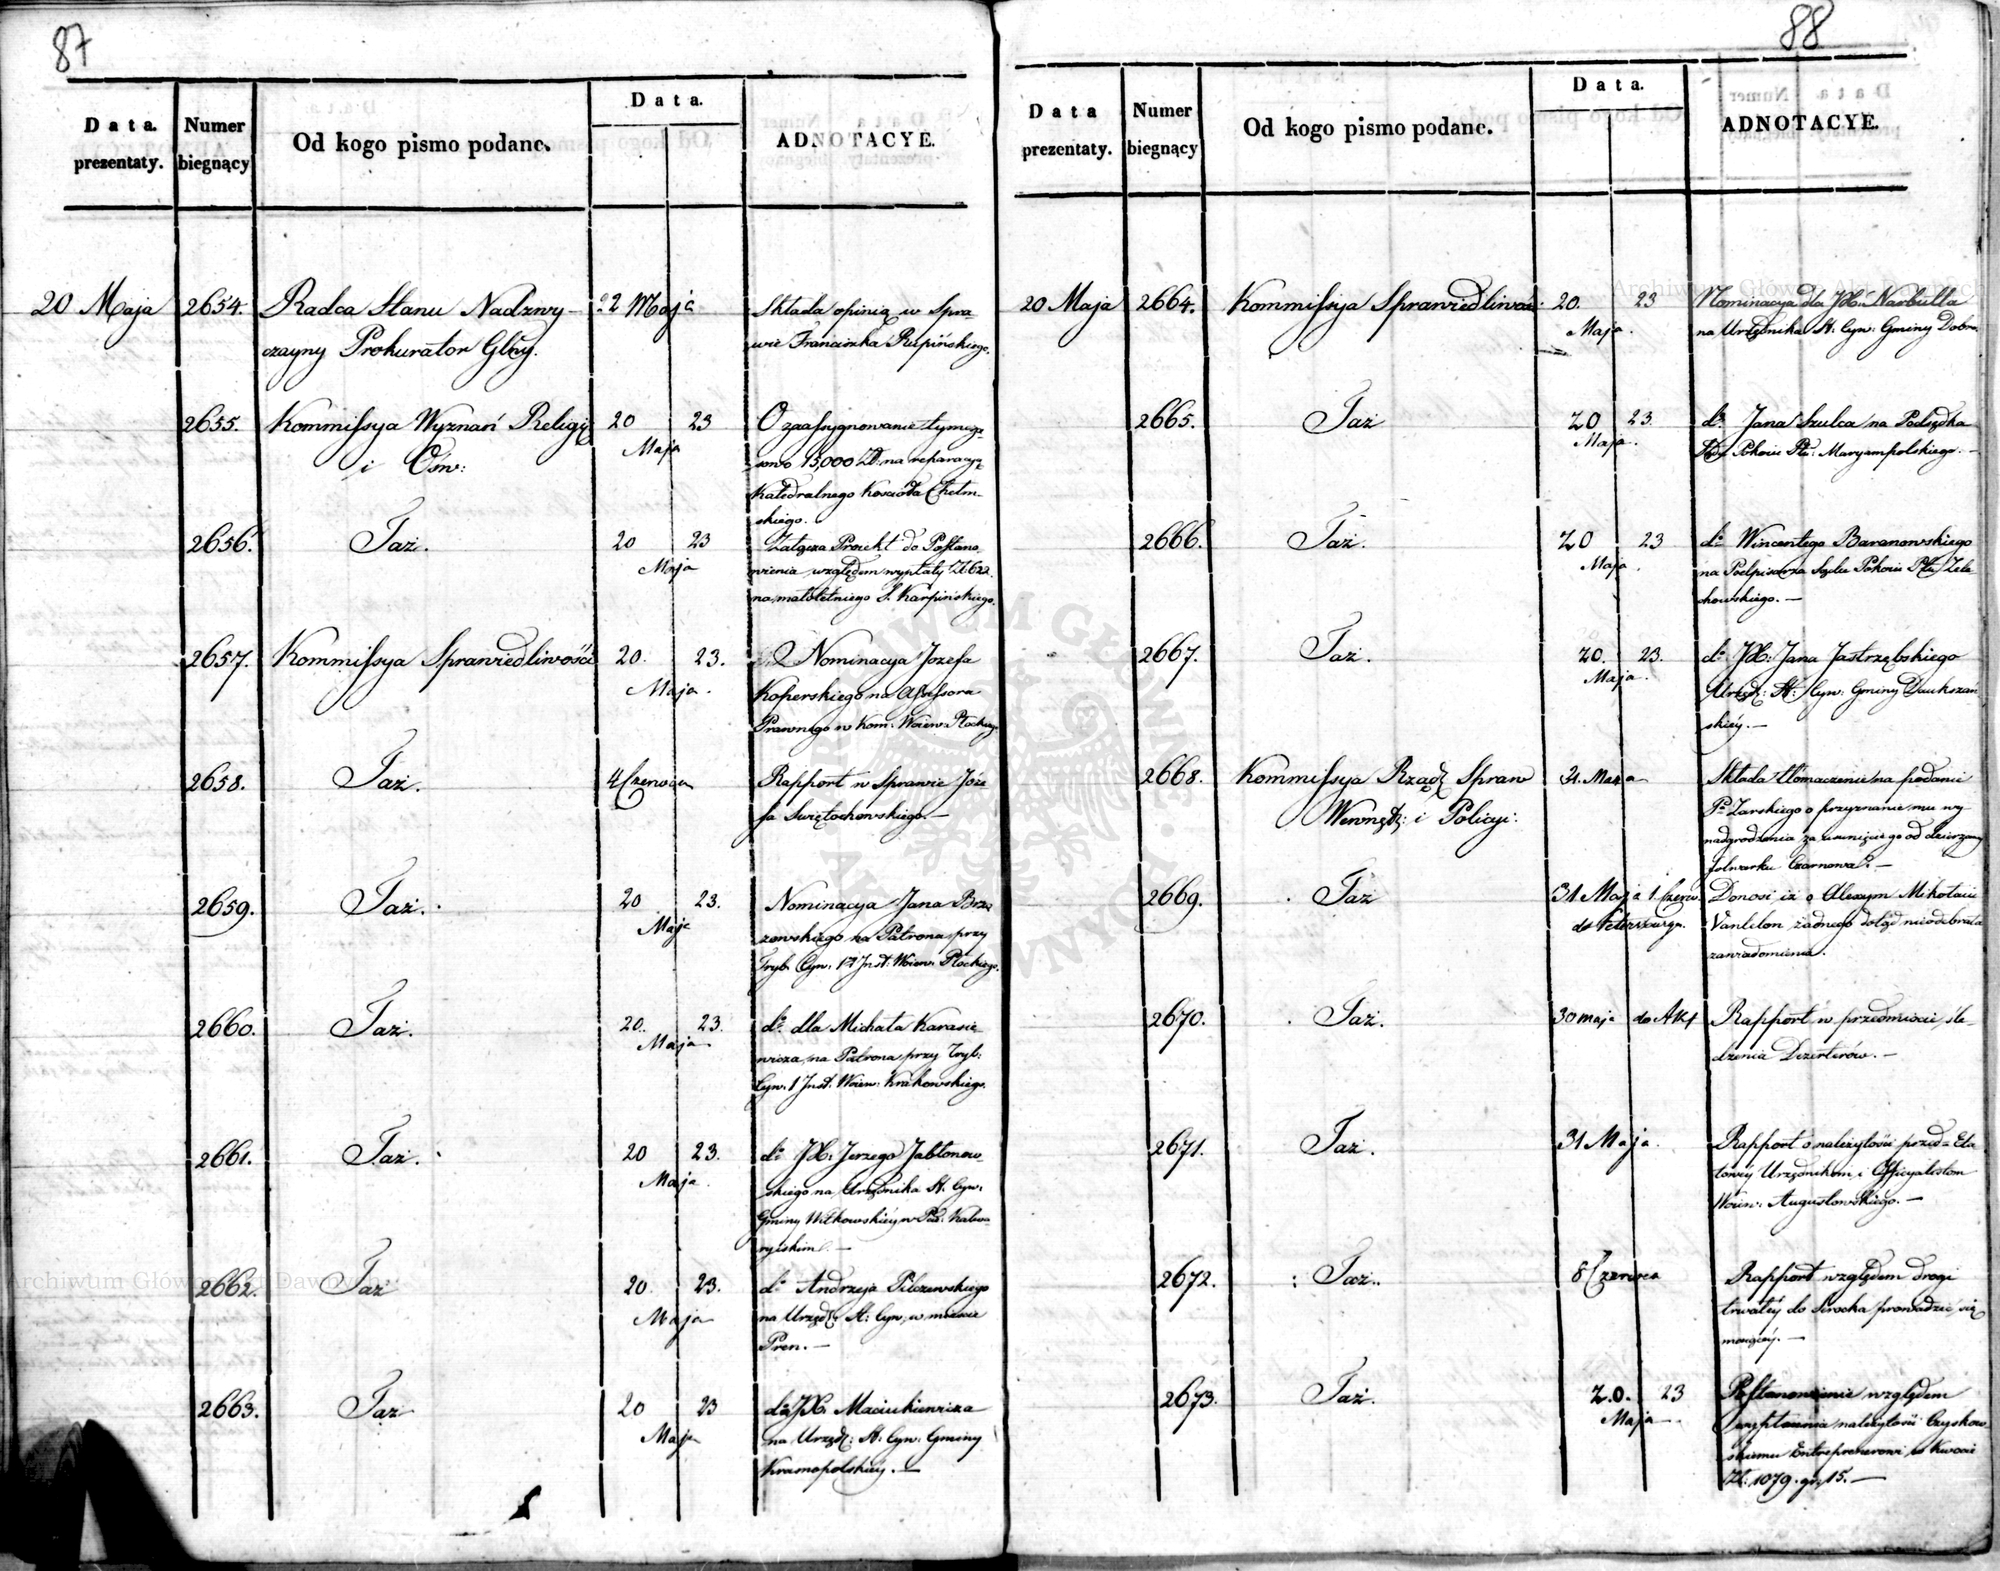 87
Data.
prezentaty.
Numer
biegnący
Od kogo pismo podane.
Data.
ADNOTACYE.
20 Maja 2654. Radca Stanu Nadzwy- 22 Maja Składa opinią w Spra
czayny Prokurator Glny. wie Franciszka Rupińskiego.
2655. Kommissya Wyznań Religij: 20 23 O zaassygnowanie tymcza
i Ośw: Maja sowo 15,000 Zł: na reparacyą
Katedralnego Kościoła Chełm-
skiego.
2656. Taż. 20 23 Załącza Proiekt do Postano
Maja wienia względem wypłaty Zł 622
na małoletniego J. Karpińskiego.
2657. Kommissya Sprawiedliwości 20. 23. Nominacya Jozefa
Maja. Koperskiego na Assessora
Prawnego w Kom: Woiew: Płockiego
2658. Taż. 4 Czerwca Rapport w Sprawie Joze
fa Swiętochowskiego.—
2659. Taż. 20 23. Nominacya Jana Brzo
Maja zowskiego na Patrona przy
Tryb. Cyw: 1éj Inst: Woiew: Płockiego.
2660. Taż. 20. 23. do dla Michała Karasie
Maja wicza na Patrona przy Tryb:
Cyw: 1 Inst: Woiew: Krakowskiego.
2661. Taż. 20 23. do JX: Jerzego Jabłonow-
Maja. skiego na Urzędnika St: Cyw:
Gminy Wilkowskiéj w Pcie: Kalwa-
ryiskim.—
2662. Taż 20. 23. do Andrzeja Pilczewskiego
Maja na Urzęd: St: Cyw: w mieście
Pren.—
2663. Taż 20 23 do JX. Maciukiewicza
Maja na Urzęd: St: Cyw: Gminy
Krasnopolskiéj.—
88
Data
prezentaty.
Numer
biegnący
Od kogo pismo podane.
Data.
ADNOTACYE.
20 Maja 2664. Kommissya Sprawiedliwości 20. 23 Nominacya dla JX: Narbutta
Maja. na Urzędnika St: Cyw: Gminy
2665. Taż 20 23. do Jana Szulca na Podsędka
Maja. Pokoiu Ptu: Maryampolskiego.—
2666. Taż. 20 23 do Wincentego Baranowskiego
Maja. na Podpisarza Sądu Pokoiu Ptu Żele
chowskiego.—
2667. Taż. 20. 23. do JX: Jana Jastrzębskiego
Maja. Urzęd: St: Cyw: Gminy Daukszań
skiéy.—
2668. Kommissya Rząd: Spraw 31. Maja Składa tłómaczenie na podanie
Wewnętz: i Policyi: Po Zarskiego o przyznanie mu wy
nadgrodzenia za usunięcie go od dzierżawy
folwarku Czarnowa.—
2669. Taż 31. Maja 1. Czerw. Donosi iż o Alexym Mikołaiu
do Petersburga. Vantelon żadnego dotąd nieodebrała
zawiadomienia.
2670. Taż. 30 maja do Akt Rapport w przedmiocie śle-
dzenia Dezerterów.—
2671. Taż. 31 Maja. Rapport o należytości przed=Eta
towéy Urzędnikom i Officyalistom
Woiew: Augustowskiego.—
2672. Taż.. 8 Czerwca Rapport względem drogi
trwałéy do Serocka prowadzić się
maiącéy.—
2673. Taż. 20. 23 Postanowienie względem
Maja wypłacenia należytości Czyskow
skiemu Entreprenerowi w kwocie
Zł: 1079. gr. 15.—